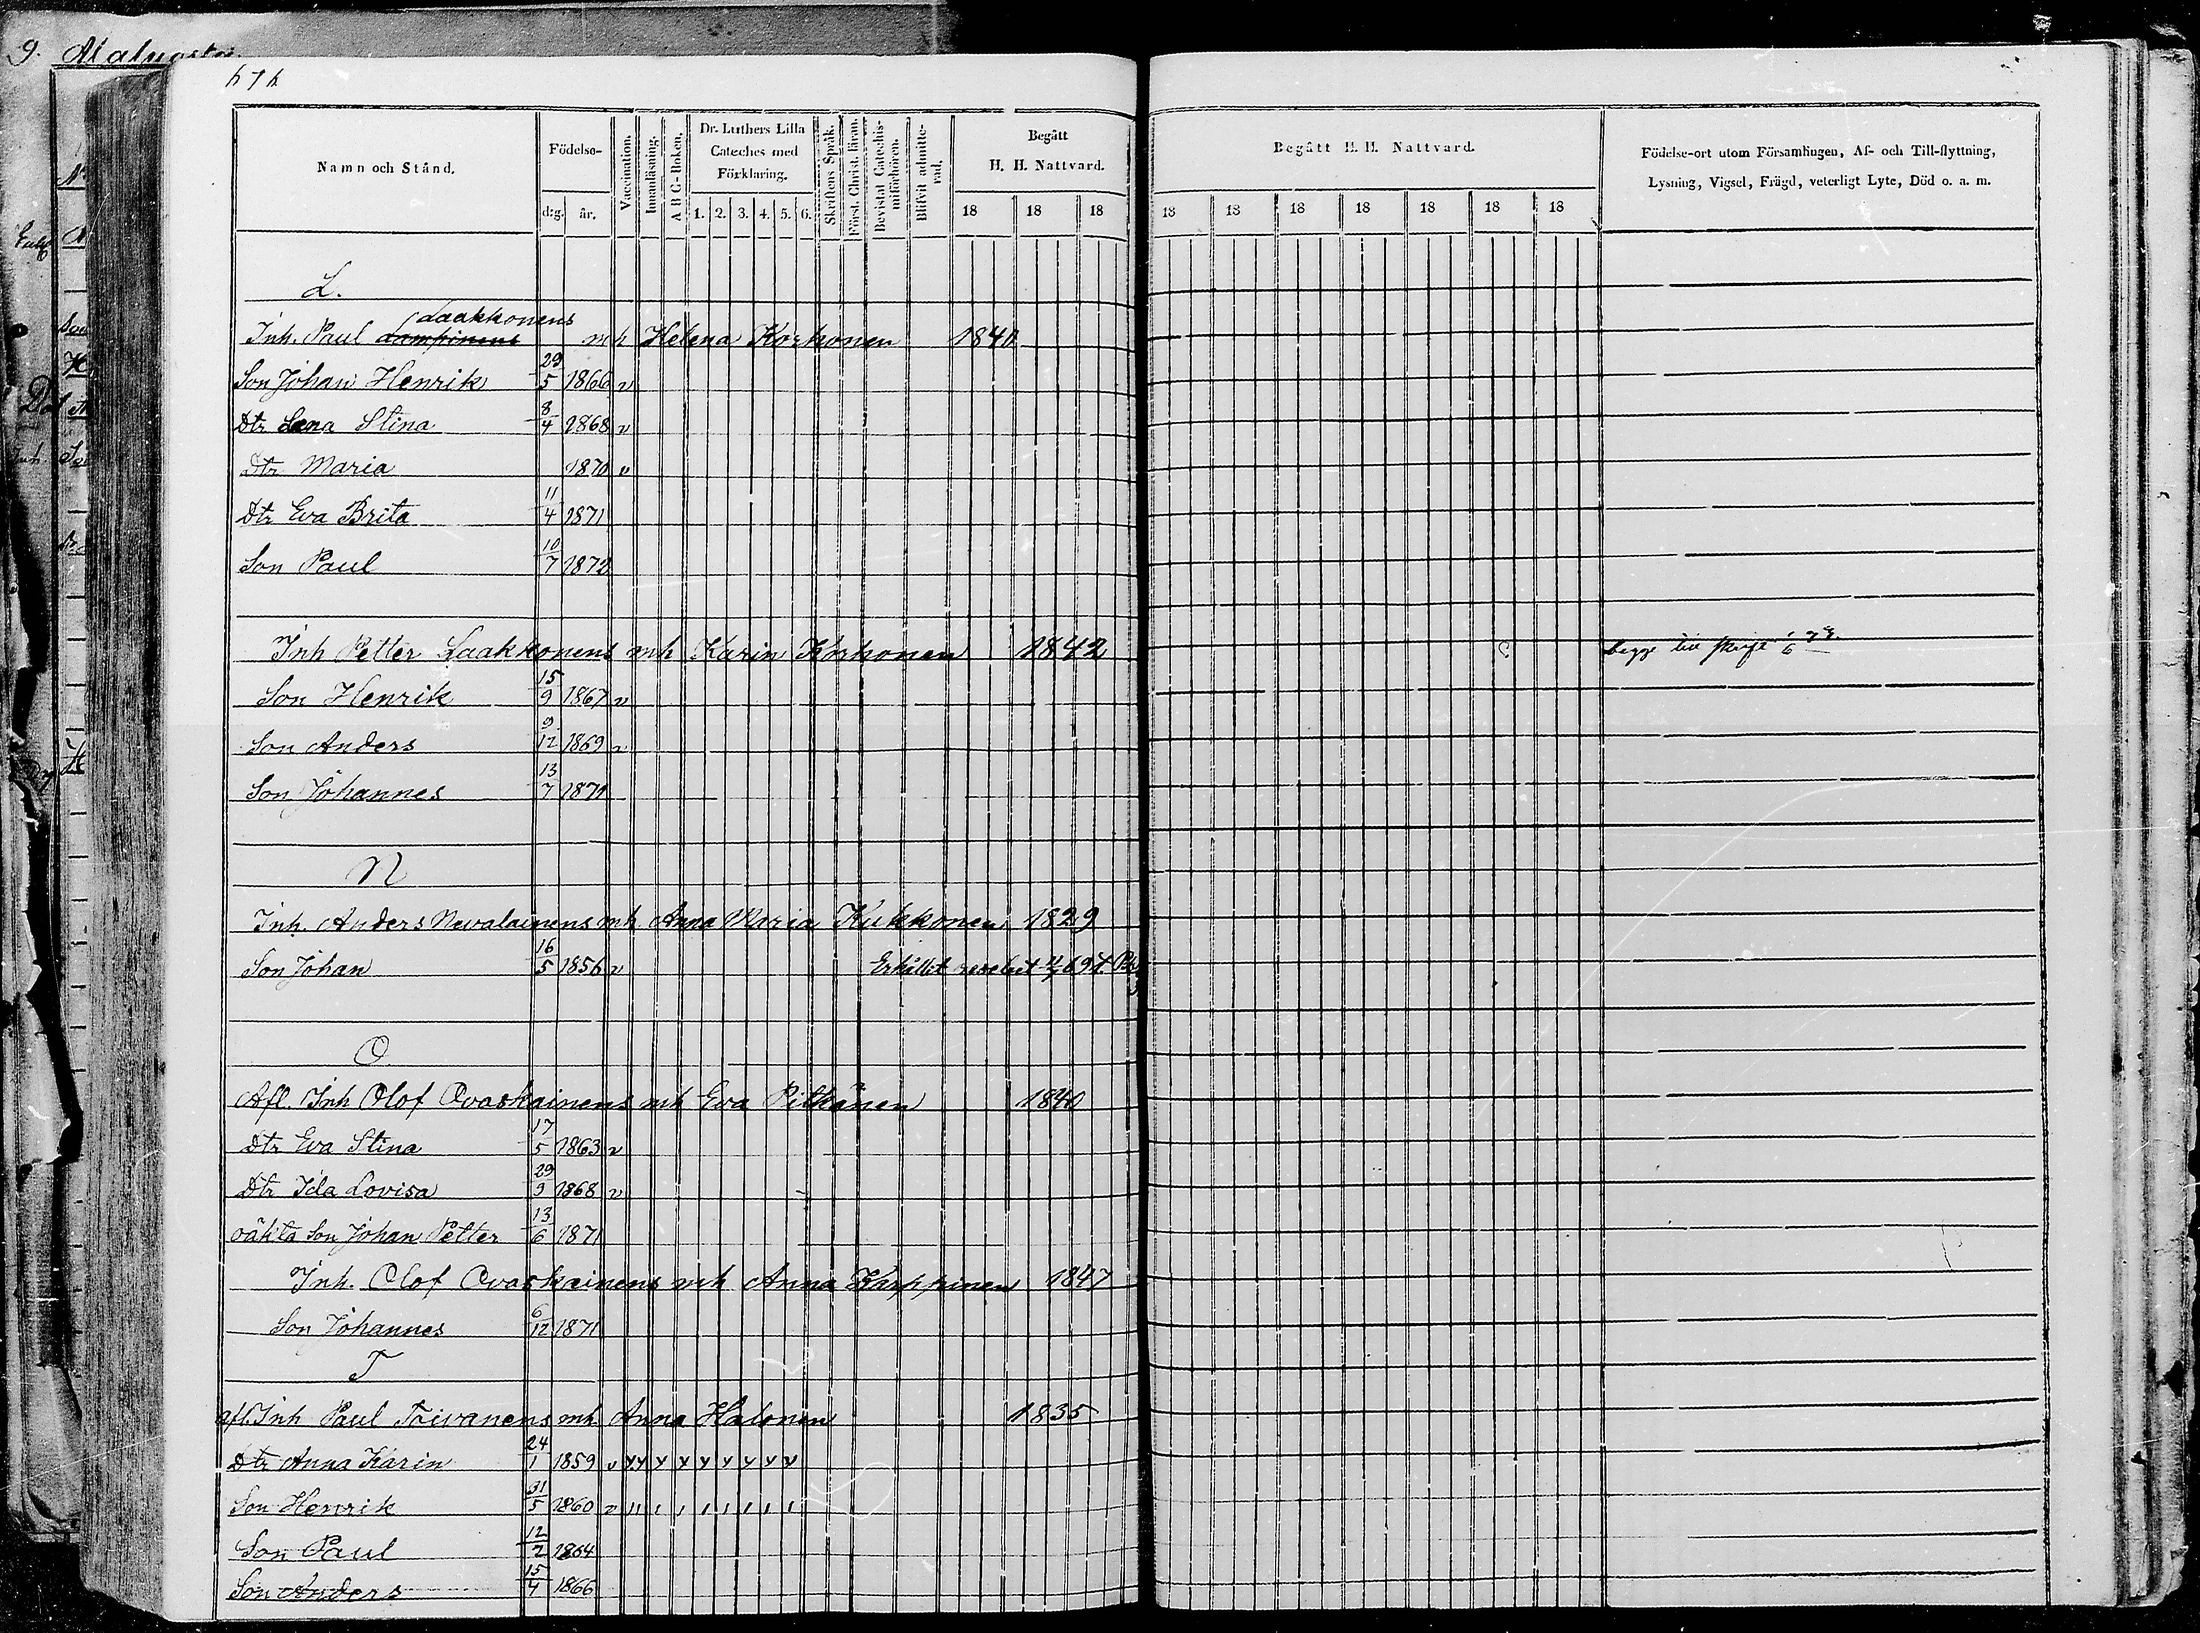 9.
Namn och Stånd.
Födelse-
dag.
år.
Vaccination.
Innanläsning.
A B C-Boken.
Dr. Luthers Lilla
Cateches med
Förklaring.
1. 2. 3. 4. 5. 6.
Skriftens Språk.
Först. Christ. läran.
Bevistat Catechis-
miförhören.
Blifvit admitte-
rad.
Begått
H. H. Nattvard.
18 18 18
Begått H. H. Nattvard.
18 18 18 18 18 18 18
Födelse-ort utom Församlingen, Af- och Till-flyttning,
Lysning, Vigsel, Frägd, veterligt Lyte, Död o. a. m.
L.
Laakkonens
Inh. Paul Lampinens mh Helena Korhonen 1840
Son Johan Henrik 29/5 1866 v
Dtr Lena Stina 8/4 1868 v
Dtr Maria 1870 v
Dtr Eva Brita 11/4 1871
Son Paul 10/7 1872
Inh Petter Laakkonens mh Karin Korhonen 1842
Son Henrik 15/9 1867 v
Son Anders 9/12 1869 v
Son Johannes 13/7 1871
N
Inh. Anders Nevalainens mh Anna Maria Kukkonen 1829
Son Johan 16/5 1856 v Erhållit
O.
Afl. Inh Olof Ovaskainens mh Eva Pitkänen 1840
Dtr Eva Stina 17/5 1863 v
Dtr Ida Lovisa 29/9 1868 v
oäkta Son Johan Petter 13/6 1871
Inh. Olof Ovaskainens mh Anna Karppinen 1847
Son Johannes 6/12 1871
T
afl. Inh Paul Toivanens mh Anna Halonen 1835
Dtr Anna Karin 24/1 1859 v
Son Henrik 31/5 1860 v
Son Paul 12/2 1864
Son Anders 15/4 1866